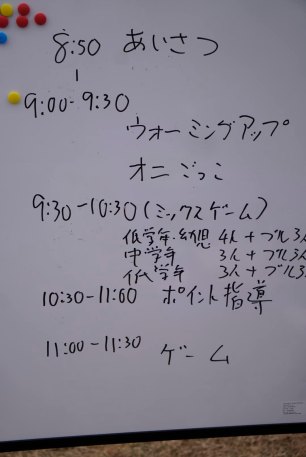 8:50 あいさつ
9:00-9:30
ウォーミングアップ
オニごっこ
9:30-10:30(ミックスゲーム)
低学年・幼児 4人+ブル3人
中学年 3人+ブル3人
低学年 3人+ブル3人
10:30-11:00 ポイント指導
11:00-11:30 ゲーム